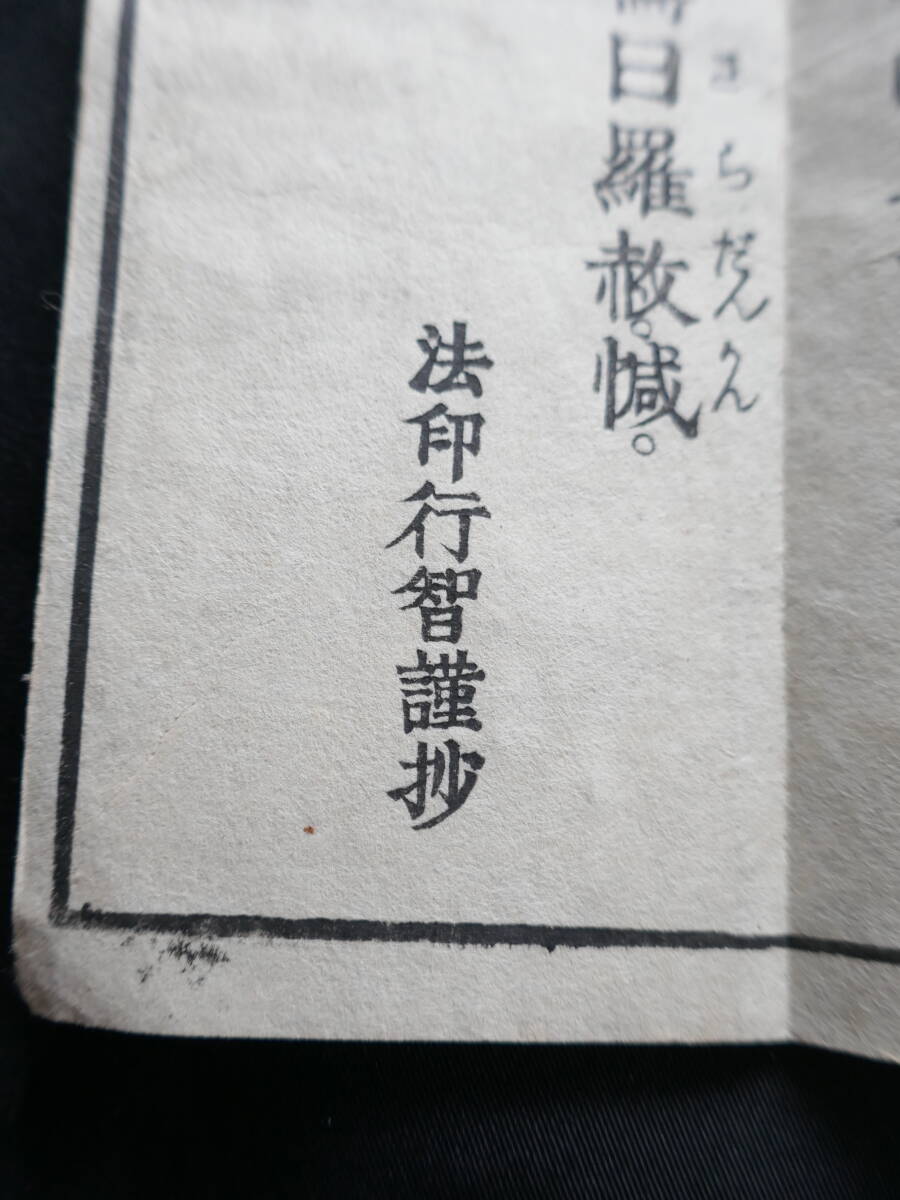 日羅赦。憾。
さらだんかん
法印行智謹抄